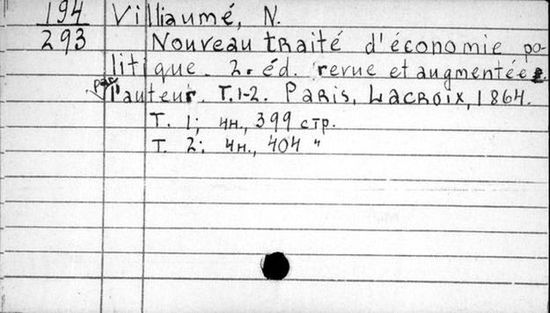 194 Villiaumé, N.
293 Nouveau traité d'économie po-
litique. 2. éd. revue et augmentée
par l'auteur. T.1-2. Paris, Lacroix, 1864.
T. 1; 4н., 399 стр.
T. 2; 4н., 404 "